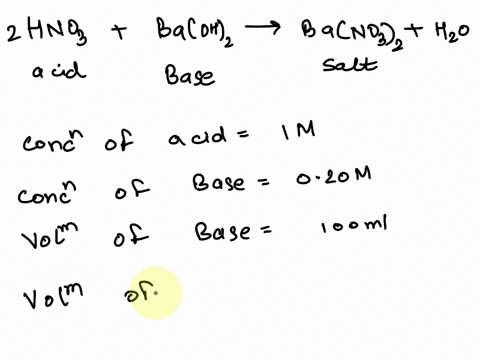 2 HNO₃ + Ba(OH)₂ → Ba(NO₃)₂ + H₂O
acid Base Salt
concⁿ of acid = 1M
concⁿ of Base = 0.20M
Volᵐ of Base = 100ml
Volᵐ of